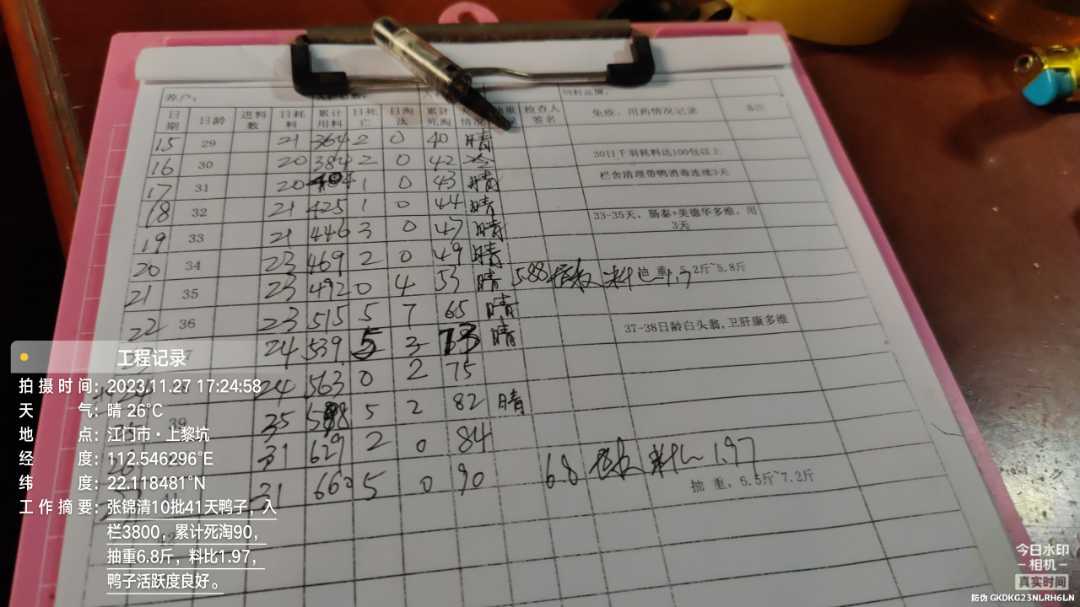 养户：
日期 日龄 进料数 日耗料 累计用料 日死亡 日淘汰 累计死淘 检查人签名 免疫、用药情况记录 备注
15 29 21 364 2 0 40 晴
16 30 20 384 2 0 42 30日千羽耗料达100包以上
17 31 20 404 1 0 43 晴 栏舍清理带鸭消毒连续3天
18 32 21 425 1 0 44 晴
19 33 21 446 3 0 47 晴 33-35天，肠泰+美德华多维，用3天
20 34 23 469 2 0 49 晴
21 35 23 492 0 4 53 晴 5.2斤~5.8斤
22 36 23 515 5 7 65 晴
24 539 5 3 73 晴 37-38日龄白头翁，卫肝康多维
24 563 0 2 75
35 598 5 2 82 晴
31 629 2 0 84
31 660 5 0 90 6.8 料比 1.97
抽重，6.5斤~7.2斤
工程记录
拍摄时间：2023.11.27 17:24:58
天气：晴 26°C
地点：江门市·上黎坑
经度：112.546296°E
纬度：22.118481°N
工作摘要：张锦清10批41天鸭子，入
栏3800，累计死淘90，
抽重6.8斤，料比1.97，
鸭子活跃度良好。
今日水印
相机
真实时间
防伪 GKDKG23NLRH6LN